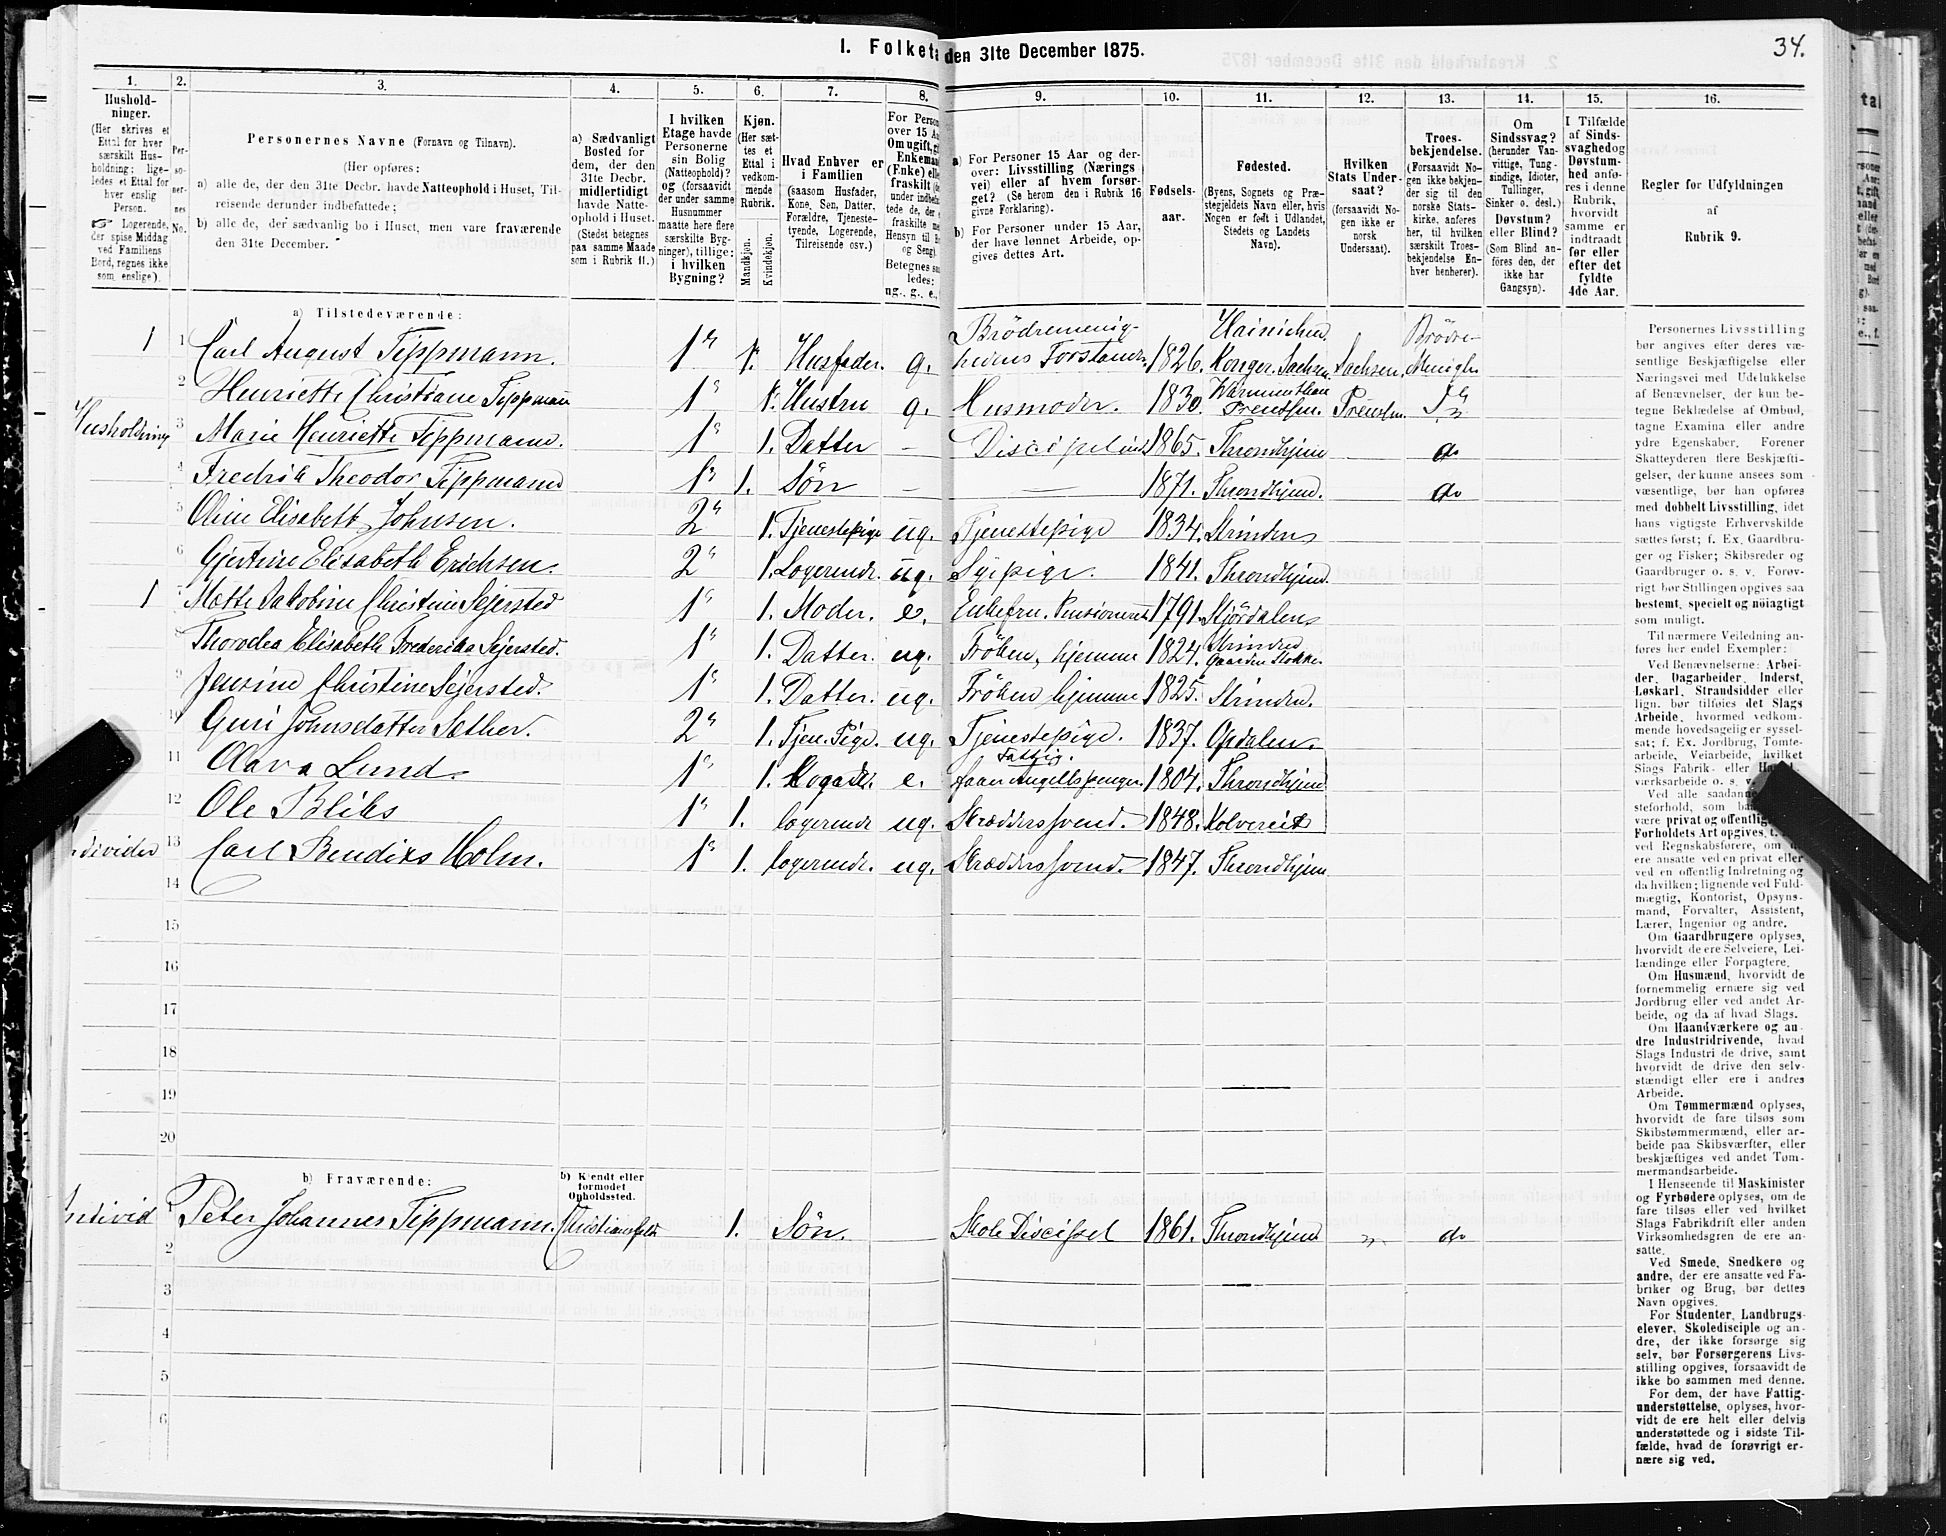 34.
I. Folketa den 31te December 1875.
1. 2. 3. 4. 5. 6. 7. 8. 9. 10. 11. 12. 13. 14. 15. 16.
Hushold-
ninger.
(Her skrives et
Ettal for hver
særskilt Hus-
holdning; lige-
ledes et Ettal for
hver enslig
Person.
☞ Logerende,
der spise Middag
ved Familiens
Bord, regnes ikke
som enslige).
Per-
so-
ner-
nes
No.
Personernes Navne (Fornavn og Tilnavn).
(Her opføres:
a) alle de, der den 31te Decbr. havde Natteophold i Huset, Til-
reisende derunder indbefattede;
b) alle de, der sædvanlig bo i Huset, men vare fraværende
den 31te December.
a) Sædvanligt
Bosted for
dem, der den
31te Decbr.
midlertidigt
havde Natte-
ophold i Huset.
(Stedet betegnes
paa samme Maade
som i Rubrik 11.)
I hvilken
Etage havde
Personerne
sin Bolig
(Natteophold)?
og (forsaavidt
der under samme
Husnummer
maatte høre flere
særskilte Byg-
ninger), tillige:
i hvilken
Bygning?
Kjøn.
(Her sæt-
tes et
Ettal i
vedkom-
mende
Rubrik.
Mandkjøn.
Kvindekjøn.
Hvad Enhver er
i Familien
(saasom Husfader,
Kone, Søn, Datter,
Forældre, Tjeneste-
tyende, Logerende,
Tilreisende osv.)
For Person
over 15 Aa
Om ugift, gi
Enkeman
(Enke) elle
fraskilt (de
under indbefa
tede de, der e
fraskilte me
Hensyn til B
og Seng).
Betegnes saa
ledes:
ug., g., e.,
a) For Personer 15 Aar og der-
over: Livsstilling (Nærings
vei) eller af hvem forsør-
get? (Se herom den i Rubrik 16
givne Forklaring).
b) For Personer under 15 Aar,
der have lønnet Arbeide, op-
gives dettes Art.
Fødsels-
aar.
Fødested.
(Byens, Sognets og Præ-
stegjeldets Navn eller, hvis
Nogen er født i Udlandet,
Stedets og Landets
Navn).
Hvilken
Stats Under-
saat?
(forsaavidt No-
gen ikke er
norsk
Undersaat).
Troes-
bekjendelse.
(Forsaavidt No-
gen ikke bekjen-
der sig til den
norske Stats-
kirke, anføres
her, til hvilken
særskilt Troes-
bekjendelse En-
hver henhører).
Om
Sindssvag?
(herunder Van-
vittige, Tung-
sindige, Idioter,
Tullinger,
Sinker o. desl.)
Døvstum?
eller Blind?
(Som Blind an-
føres den, der
ikke har
Gangsyn).
I Tilfælde
af Sinds-
svaghed og
Døvstum-
hed anfø-
res i denne
Rubrik,
hvorvidt
samme er
indtraadt
før eller
efter det
fyldte
4de Aar.
Regler for Udfyldningen
af
Rubrik 9.
a) Tilstedeværende:
1 1 Carl August Tippmann. 1" 1. Husfader. g. Brödremenig-hedens Forstander 1826. Hainichen Konger. Sachsen. Sachsen. Brödre-Menigh.
2 Henriette Christiane Tippmann 1" 1. Hustru g. Husmoder. 1830. Preussen. Preussen.
Husholdning 3 Marie Henriette Tippmann. 1" 1. Datter — Discipelinde 1865. Throndhjem do
4 Fredrik Theodor Tippmann 1" 1. Sön — — 1871. Throndhjem. do
5 Oline Elisabeth Johnsen. 2" 1. Tjenestepige ug. Tjenestepige 1834. Strinden
6 Gjertine Elisabeth Erichsen. 2" 1. Logerende. ug. Sypige. 1841. Throndhjem.
1 7 Mette Jakobine Christine Sejersted 1" 1. Moder. e. Enkefru. Pensioneret 1791. Stjördalen
Thorodea Elisabeth Frederika Sejersted. 1" 1. Datter. ug. Fröken, hjemme 1824. Strinden Gaarden Stokke.
9 Jensine Christine Sejersted. 1" 1. Datter. ug. Fröken hjemme 1825. Strinden.
10 Guri Johnsdatter Sæther. 2" 1. Tjen. Pige. ug. Tjenestepige. 1837. Opdalen.
11 Olava Lund. 1" 1. e. faar Fattig. 1804. Throndhjem
12 Ole Bliks 1" 1. logerende ug. Skræddersvend. 1848. Kolvereid
dividen 13 Carl Bendixs Holm. 1" 1. logerende. ug. Skræddersvend. 1847. Throndhjem
14
15
16
17
18
19
20
b) Fraværende:
b) Kjendt eller
formodet
Opholdssted.
individ Peter Johannes Tippmann. Christiansfeld 1. Sön. Skole Discipel 1861. Throndhjem " do
2
3
4
5
6
Personernes Livsstilling
bør angives efter deres væ-
sentlige Beskjæftigelse eller
Næringsvei med Udelukkelse
af Benævnelser, der kun be-
tegne Beklædelse af Ombud,
tagne Examina eller andre
ydre Egenskaber. Forener
Skatteyderen flere Beskjæfti-
gelser, der kunne ansees som
væsentlige, bør han opføres
med dobbelt Livsstilling, idet
hans vigtigste Erhvervskilde
sættes først; f. Ex. Gaardbru-
ger og Fisker; Skibsreder og
Gaardbruger o. s. v. Forøv-
rigt bør Stillingen opgives saa
bestemt, specielt og nøiagtigt
som muligt.
Til nærmere Veiledning an-
føres her endel Exempler:
Ved Benævnelserne: Arbei-
der, Dagarbeider, Inderst,
Løskarl, Strandsidder eller
lign. bør tilføies det Slags
Arbeide, hvormed vedkom-
mende hovedsagelig er syssel-
sat; f. Ex. Jordbrug, Tomte-
arbeide, Veiarbeide, hvilket
Slags Fabrik- eller
værksarbeide o. s. v.
Ved alle saadanne
steforhold, som
være privat og offentlig
Forholdets Art opgives, t.
ved Regnskabsførere, om
ere ansatte ved en privat eller
ved en offentlig Indretning og
da hvilken; lignende ved Fuld-
mægtig, Kontorist, Opsyns-
mand, Forvalter, Assistent,
Lærer, Ingeniør og andre.
Om Gaardbrugere oplyses,
hvorvidt de ere Selveiere, Lei-
lændinge eller Forpagtere.
Om Husmænd, hvorvidt de
fornemmelig ernære sig ved
Jordbrug eller ved andet Ar-
beide, og da af hvad Slags.
Om Haandværkere og an-
dre Industridrivende, hvad
Slags Industri de drive, samt
hvorvidt de drive den selv-
stændigt eller ere i andres
Arbeide.
Om Tømmermænd oplyses,
hvorvidt de fare tilsøs som
Skibstømmermænd, eller ar-
beide paa Skibsværfter, eller
beskjæftiges ved andet Tøm-
mermandsarbeide.
I Henseende til Maskinister
og Fyrbødere oplyses, om de
fare tilsøs eller ved hvilket
Slags Fabrikdrift eller anden
Virksomhedsgren de ere an-
satte.
Ved Smede, Snedkere og
andre, der ere ansatte ved Fa-
briker og Brug, bør dettes
Navn opgives.
For Studenter, Landbrugs-
elever, Skoledisciple og an-
dre, der ikke forsørge sig
selv, bør Forsørgerens Livs-
stilling opgives, forsaavidt de
ikke bo sammen med denne.
For dem, der have Fattig-
understøttelse, oplyses, hvor-
vidt de ere helt eller delvis
understøttede og i sidste Til-
fælde, hvad de forøvrigt er-
nære sig ved.